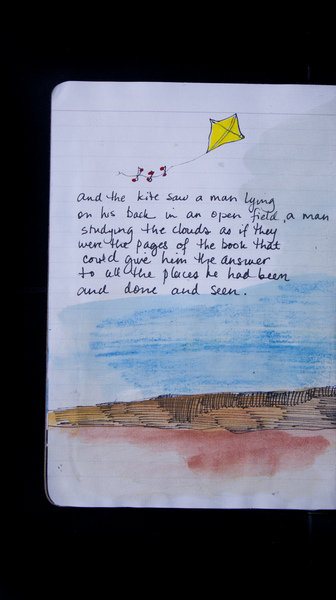 and the kite saw a man lying
on his back in an open field, a man
studying the clouds as if they
were the pages of the book that
could give him the answer
to all the places he had been
and done and seen.